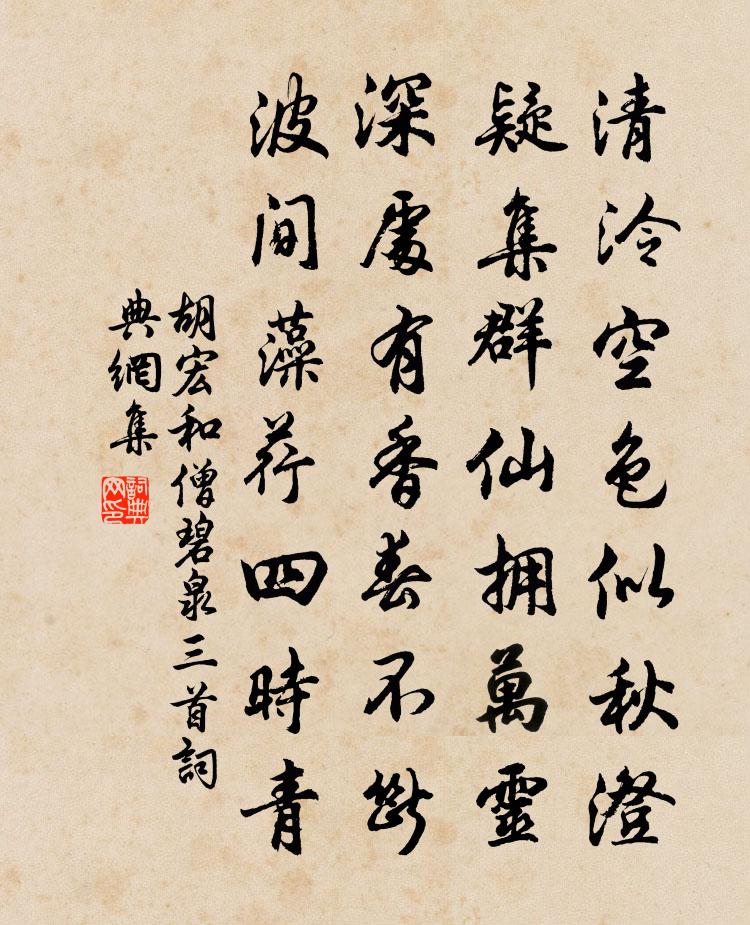 清泠空色似秋澄
疑集群仙拥萬靈
深處有香春不斷
波间藻荇四時青
胡宏和僧碧泉三首詞
典網集
詞典
网印